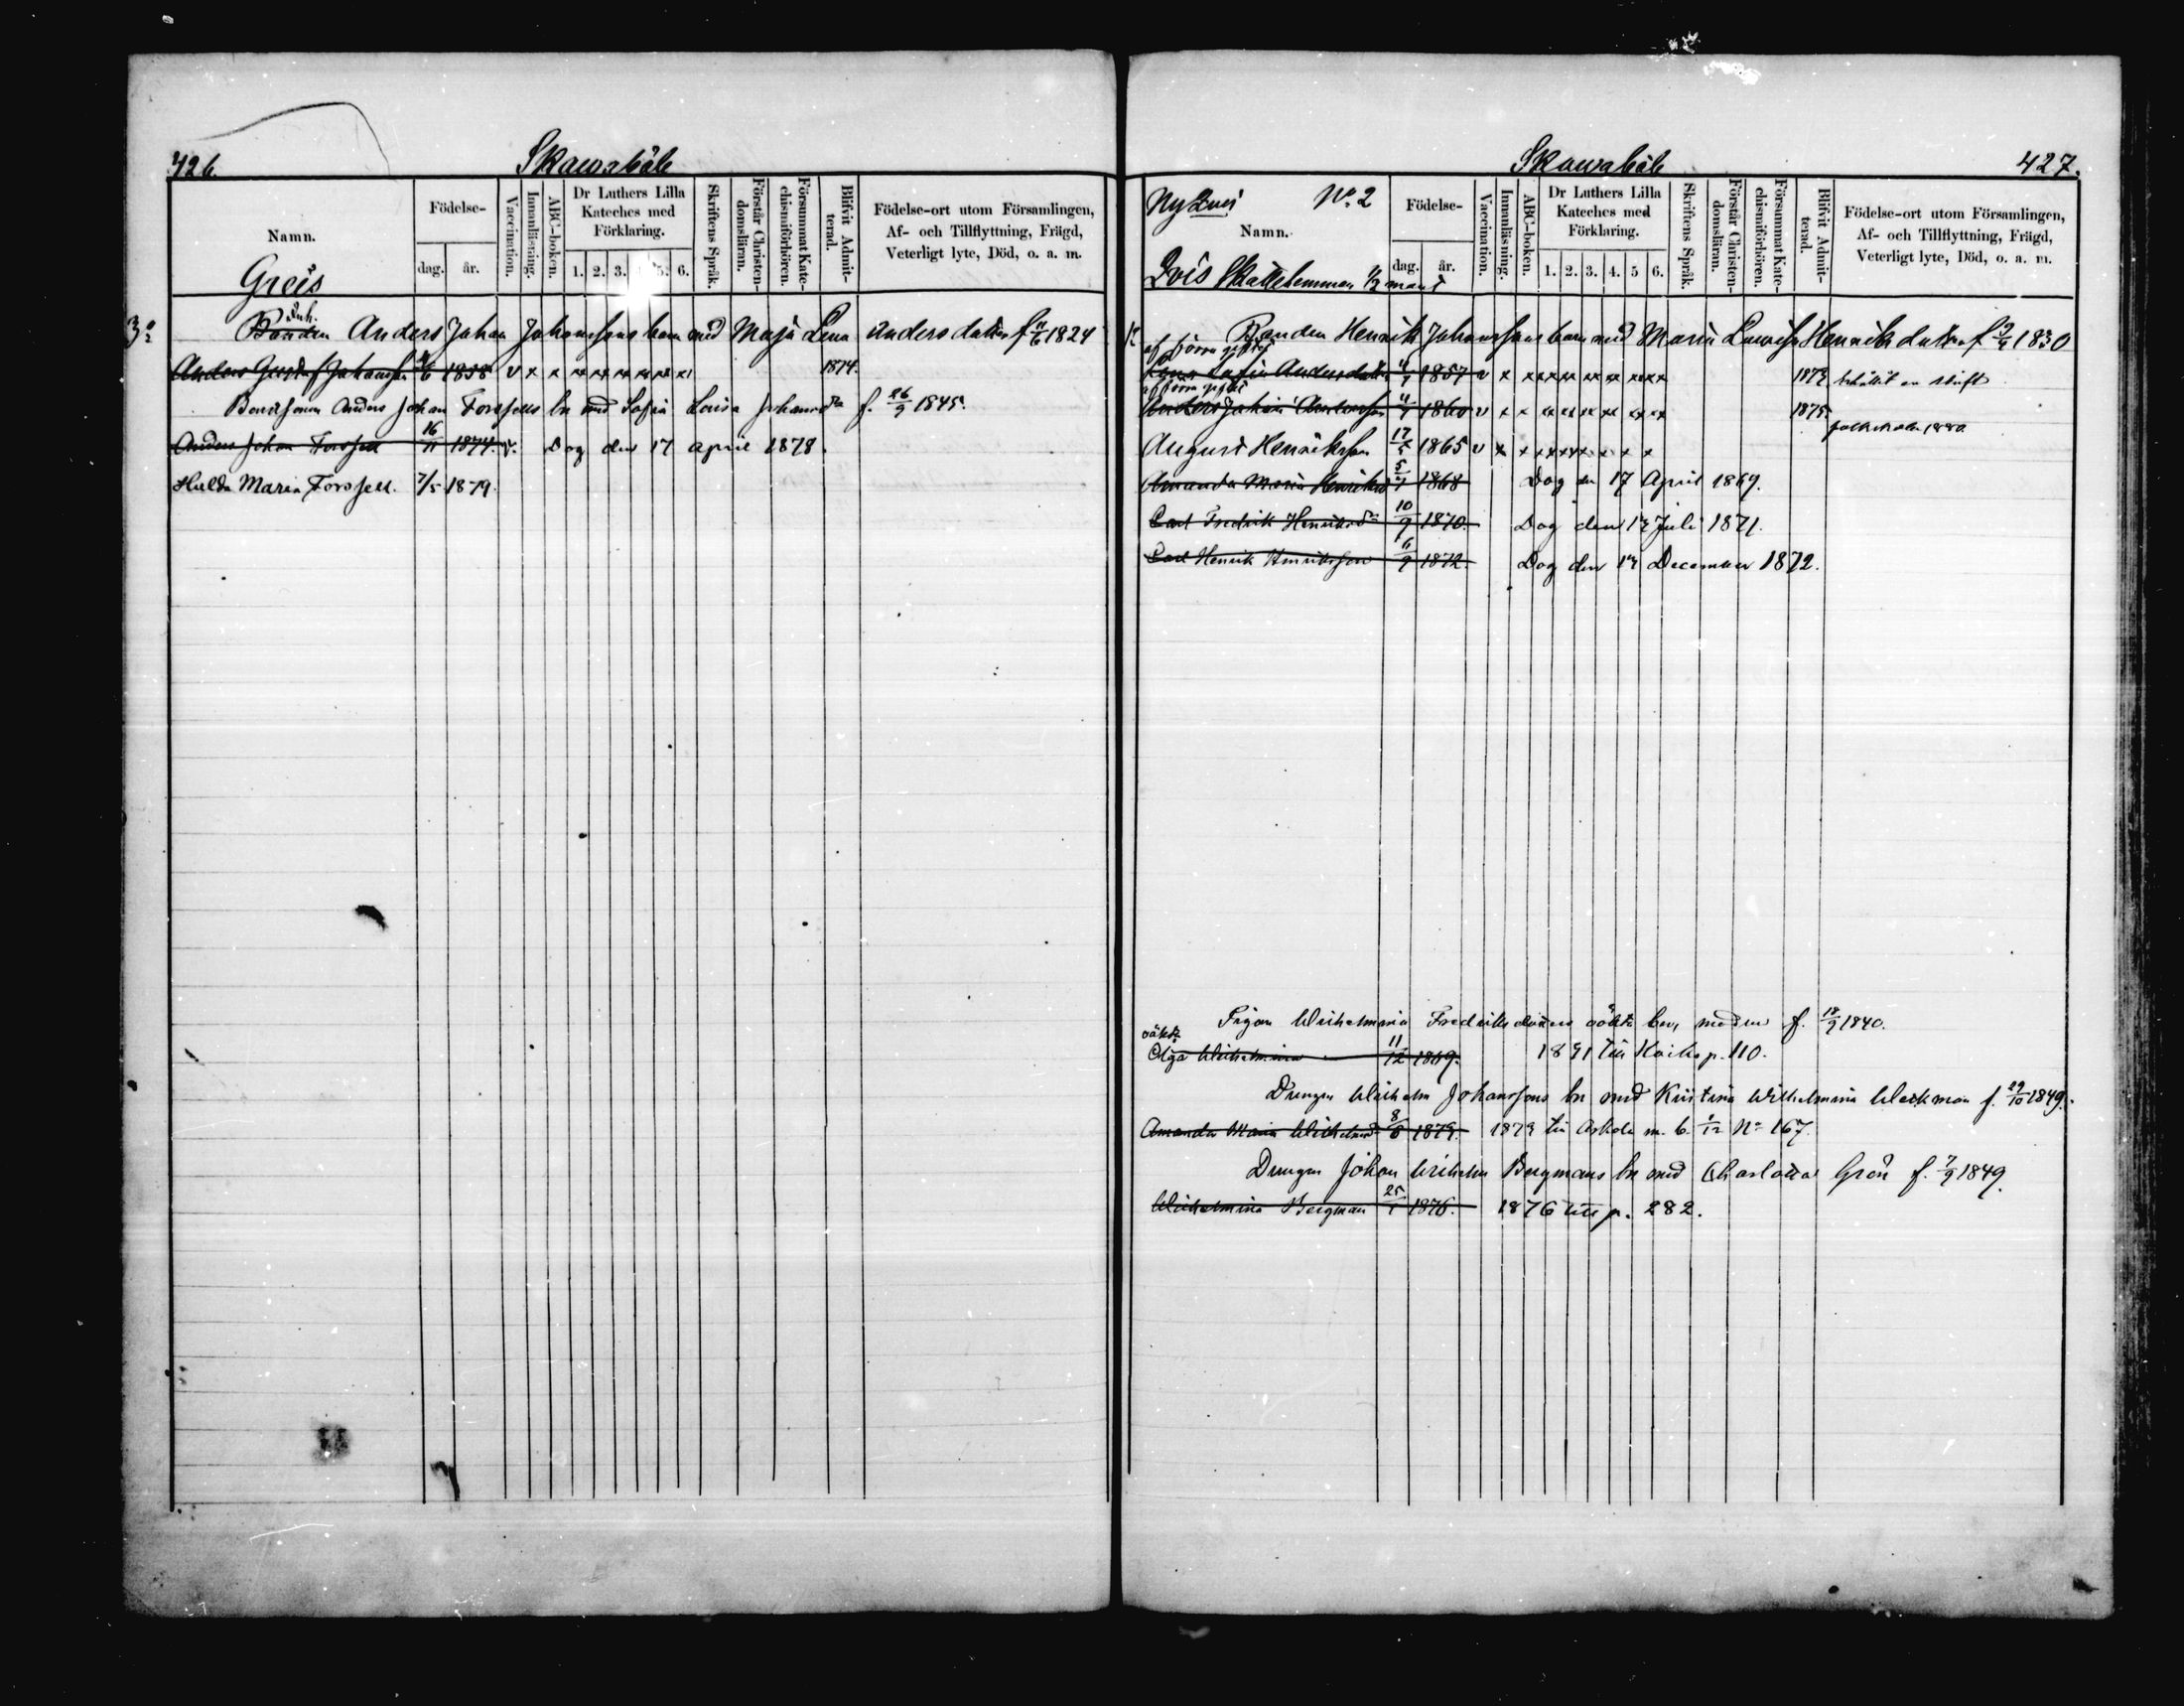 426.
Skawaböle
Namn.
Födelse-
dag. år.
Vaccination.
Innanläsning.
ABC-boken.
Dr Luthers Lilla Kateches med Förklaring.
1. 2. 3. 5. 6.
Skriftens Språk.
Förstår Christendomsläran.
Försummat Katechismiförhören.
Blifvit Admitterad.
Födelse-ort utom Församlingen, Af- och Tillflyttning, Frägd, Veterligt lyte, Död, o. a. m.
Greis
Bonden Anders Johan Johanssons barn med Maja Lena Andersdotter f. 11/6 1824
Anders Gustaf Johansson 1858 v x x xx xx xx xx x 1874.
Bondsonen Anders Johan Forssells bn med Sofia Lovisa Johansdr f. 26/9 1845.
Anders Johan Forssell 16/11 1874. v. Dog den 17 april 1878.
Hulda Maria Forssell. 7/5 1879.
Skawaböle
427.
Ny Zvis No. 2
Namn.
Födelse-
dag. år.
Vaccination.
Innanläsning.
ABC-boken.
Dr Luthers Lilla Kateches med Förklaring.
1. 2. 3. 4. 5 6.
Skriftens Språk.
Förstår Christendomsläran.
Försummat Katechismiförhören.
Blifvit Admitterad.
Födelse-ort utom Församlingen, Af- och Tillflyttning, Frägd, Veterligt lyte, Död, o. a. m.
Skattehemman 1/2
Bonden Henrik Johanssons barn med Maria Lovisa Henriksdotter f. 1830
af förra giftet
Sofia Andersdotter 1857 v x x x x x x x x x x x
af förra giftet
Anders Johan Andersson 1860 v x x xx xx xx xx xx 1875
folkskolan 1880
August Henriksson 17/5 1865 v x x x x x x x x x x
Amanda Maria Henriksd 5/1 1868 Dog den 17 April 1869.
Carl Fredrik Henrikss 10/9 1870. Dog den Juli 1871.
Carl Henrik Henriksson 6/9 1872. Dog den December 1872.
Pigan Wilhelmina Fredriksdotters oäkta bn, modren f. 18/9 1840.
oäkta
Olga Wilhelmina 11/12 1869. p. 110.
Drengen Wilhelm Johanssons bn med Kristina Wilhelmina Weckman f. 29/10 1849.
Amanda Maria Wilhelmsd 8/8 1879. 1879 till Askola m. b. 1/12 No 167.
Drengen Johan Wilhelm Bergmans bn med Charlotta Grön f. 7/9 1849.
Wilhelmina Bergman 25/1 1876. 1876 till p. 282.